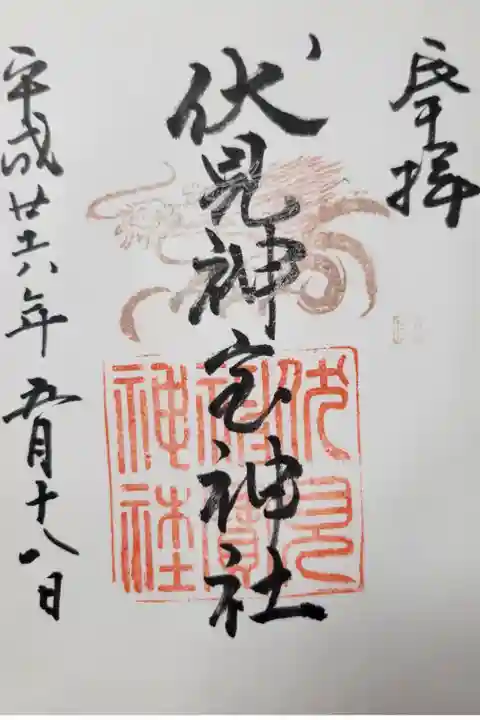 奉拝
伏見神宝神社
伏見
神寳
神社
平成廿六年五月十八日